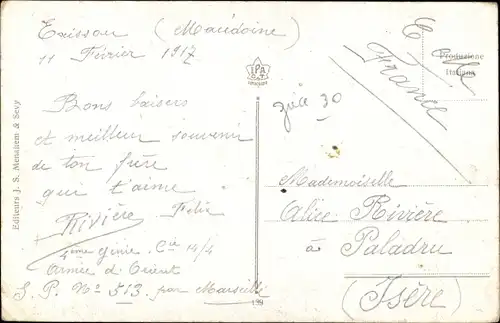 (Macédoine)
11 Février 1917
Bons baisers
et meilleur souvenir
de ton frère
qui t'aime
Felix
Rivière
4ème Génie. Cie 14/4
Armée d'Orient
S. P. No 513. par Marseille
Editeurs J. S. Menahem & Sevy
IPA
CT
139
E
France
Produzione
Italiana
30
Mademoiselle
Alice Rivière
à Paladru
(Isère)